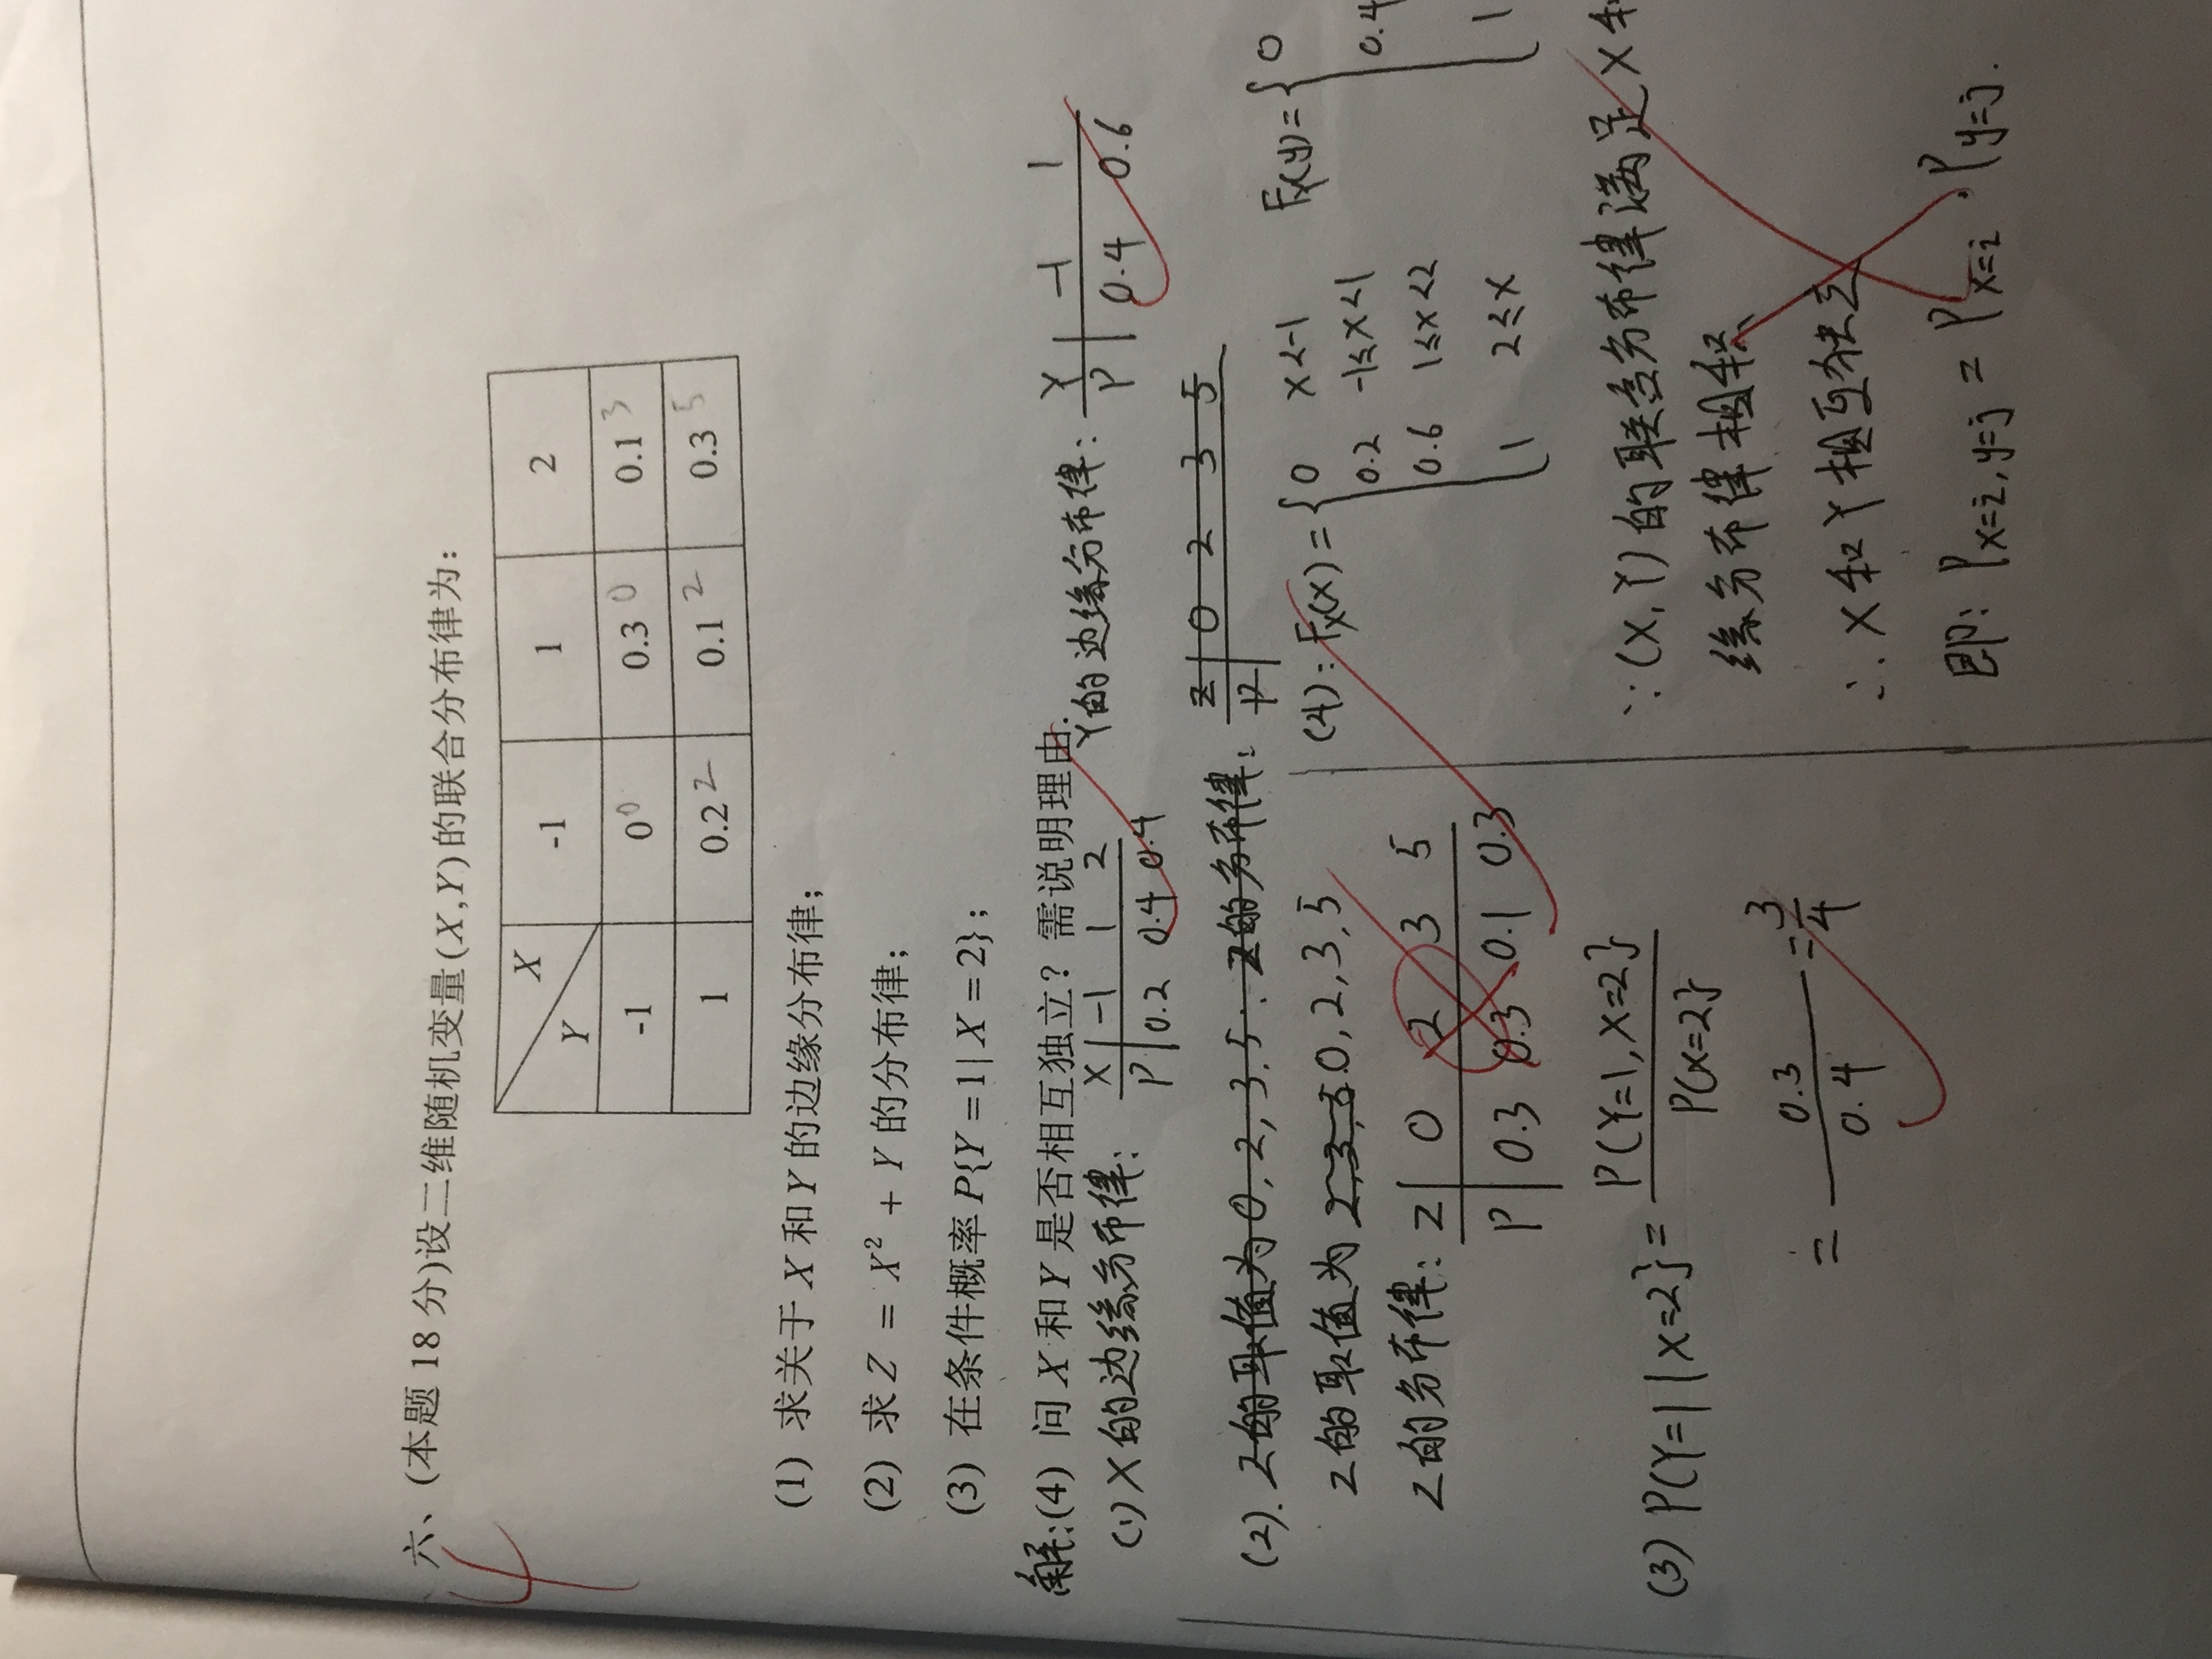 六、(本题 18 分)设二维随机变量(X,Y)的联合分布律为:
X
Y
-1 1 2
-1 0 0 0.3 0 0.1 3
1 0.2 2 0.1 2 0.3 5
4
(1) 求关于 X 和 Y 的边缘分布律;
(2) 求 Z = X² + Y 的分布律;
(3) 在条件概率 P{Y=1|X=2};
解:(4) 问 X 和 Y 是否相互独立? 需说明理由.
(1) X的边缘分布律: X -1 1 2
P 0.2 0.4 0.4
Y的边缘分布律: Y -1 1
P 0.4 0.6
(2). Z的取值为0,2,3,5∴Z的分布律: Z 0 2 3 5
P
Z的取值为 2,3,5 0,2,3,5
Z的分布律: Z 0 2 3 5
P 0.3 0.3 0.1 0.3
(3) P{Y=1|X=2}= P{Y=1,X=2}
P{X=2}
= 0.3 = 3
0.4 4
(4): Fx(x)= { 0 x<-1
0.2 -1≤x<1
0.6 1≤x<2
1 2≤x
FY(y)= { 0
0.4
1
∵(X,Y)的联合分布律满足X和
缘分布律相积
∴X和Y相互独立
即: Px=i,y=j = Px=i · Py=j.